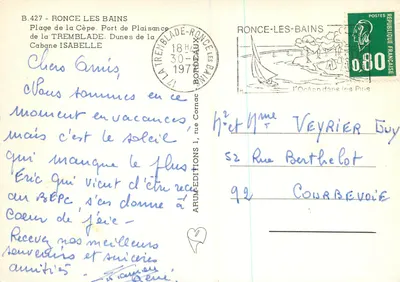 B.427 - RONCE LES BAINS
Plage de la Cèpe. Port de Plaisance
de la TREMBLADE. Dunes de la
Cabane ISABELLE
Chers Amis,
Nous sommes en ce
moment en vacances,
mais c'est le soleil
qui manque le plus
Eric qui vient d'être reçu
au BEPC, s'en donne à
coeur de joie -
Recevez nos meilleurs
souvenirs et sincères
amitiés -
ARUM-EDITIONS 1, rue Cornac - BORDEAUX
17 LA TREMBLADE-RONCE LES BAINS
18H
30-
197
RONCE-LES-BAINS
POSTES
FRANCE
0,80
Mr et Mme VEYRIER Guy
52 Rue Berthelot
92 COURBEVOIE